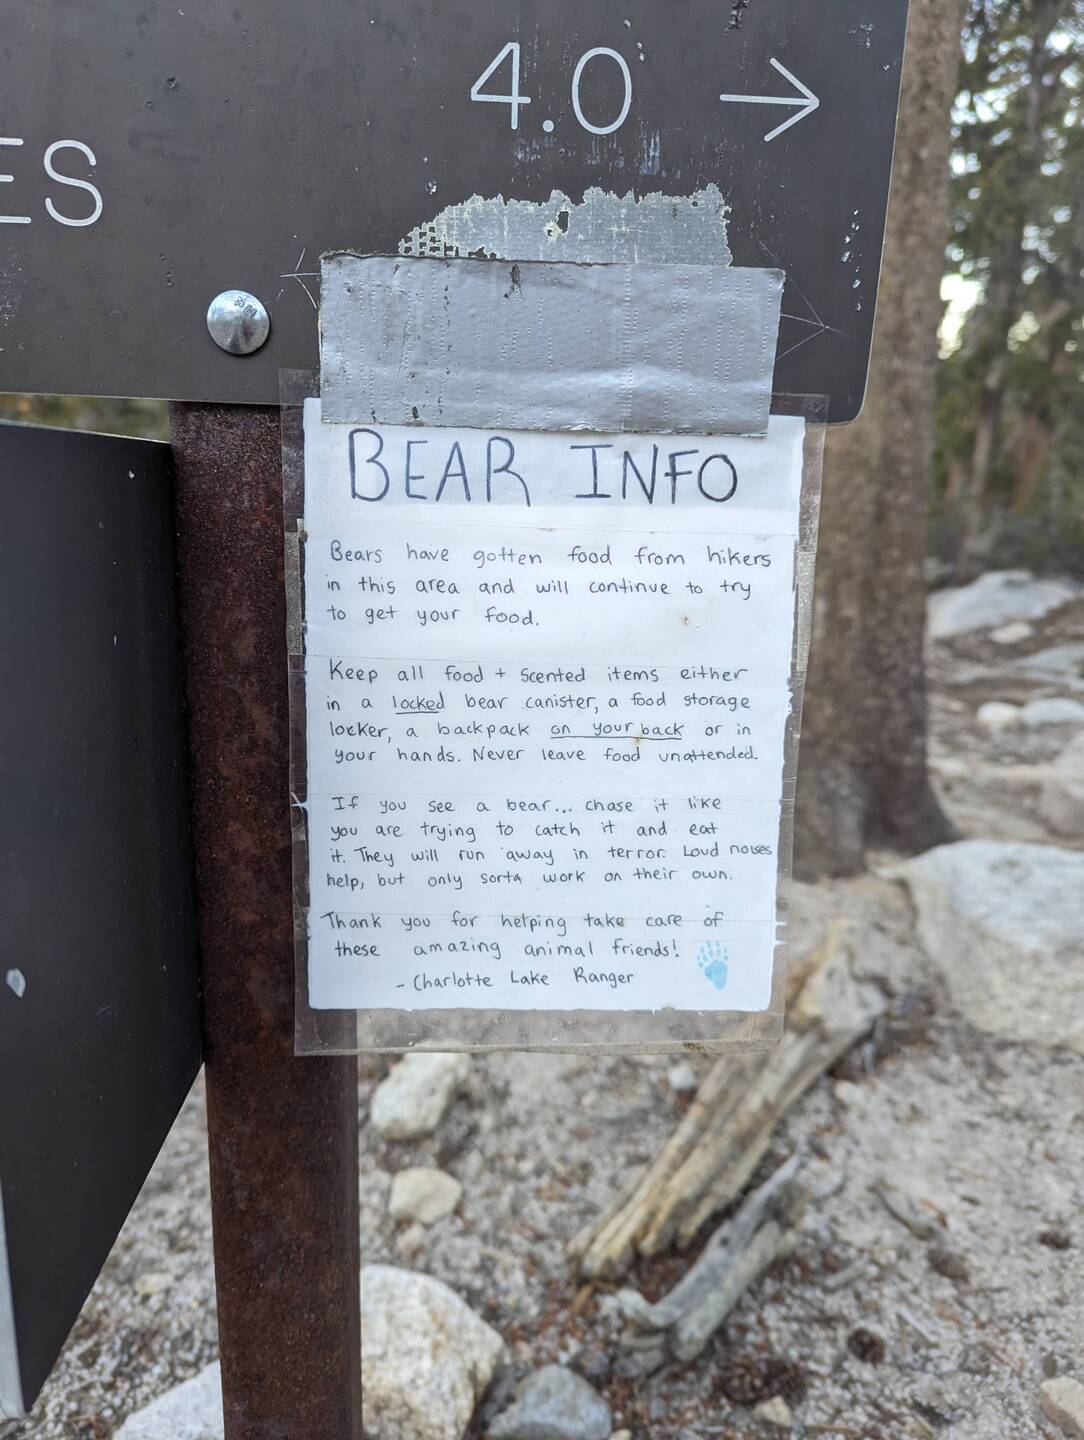 4.0 →
ES
BEAR INFO
Bears have gotten food from hikers
in this area and will continue to try
to get your food.
Keep all food + scented items either
in a locked bear canister, a food storage
locker, a backpack on your back or in
your hands. Never leave food unattended.
If you see a bear... chase it like
you are trying to catch it and eat
it. They will run away in terror. Loud noises
help, but only sorta work on their own.
Thank you for helping take care of
these amazing animal friends!
- Charlotte Lake Ranger